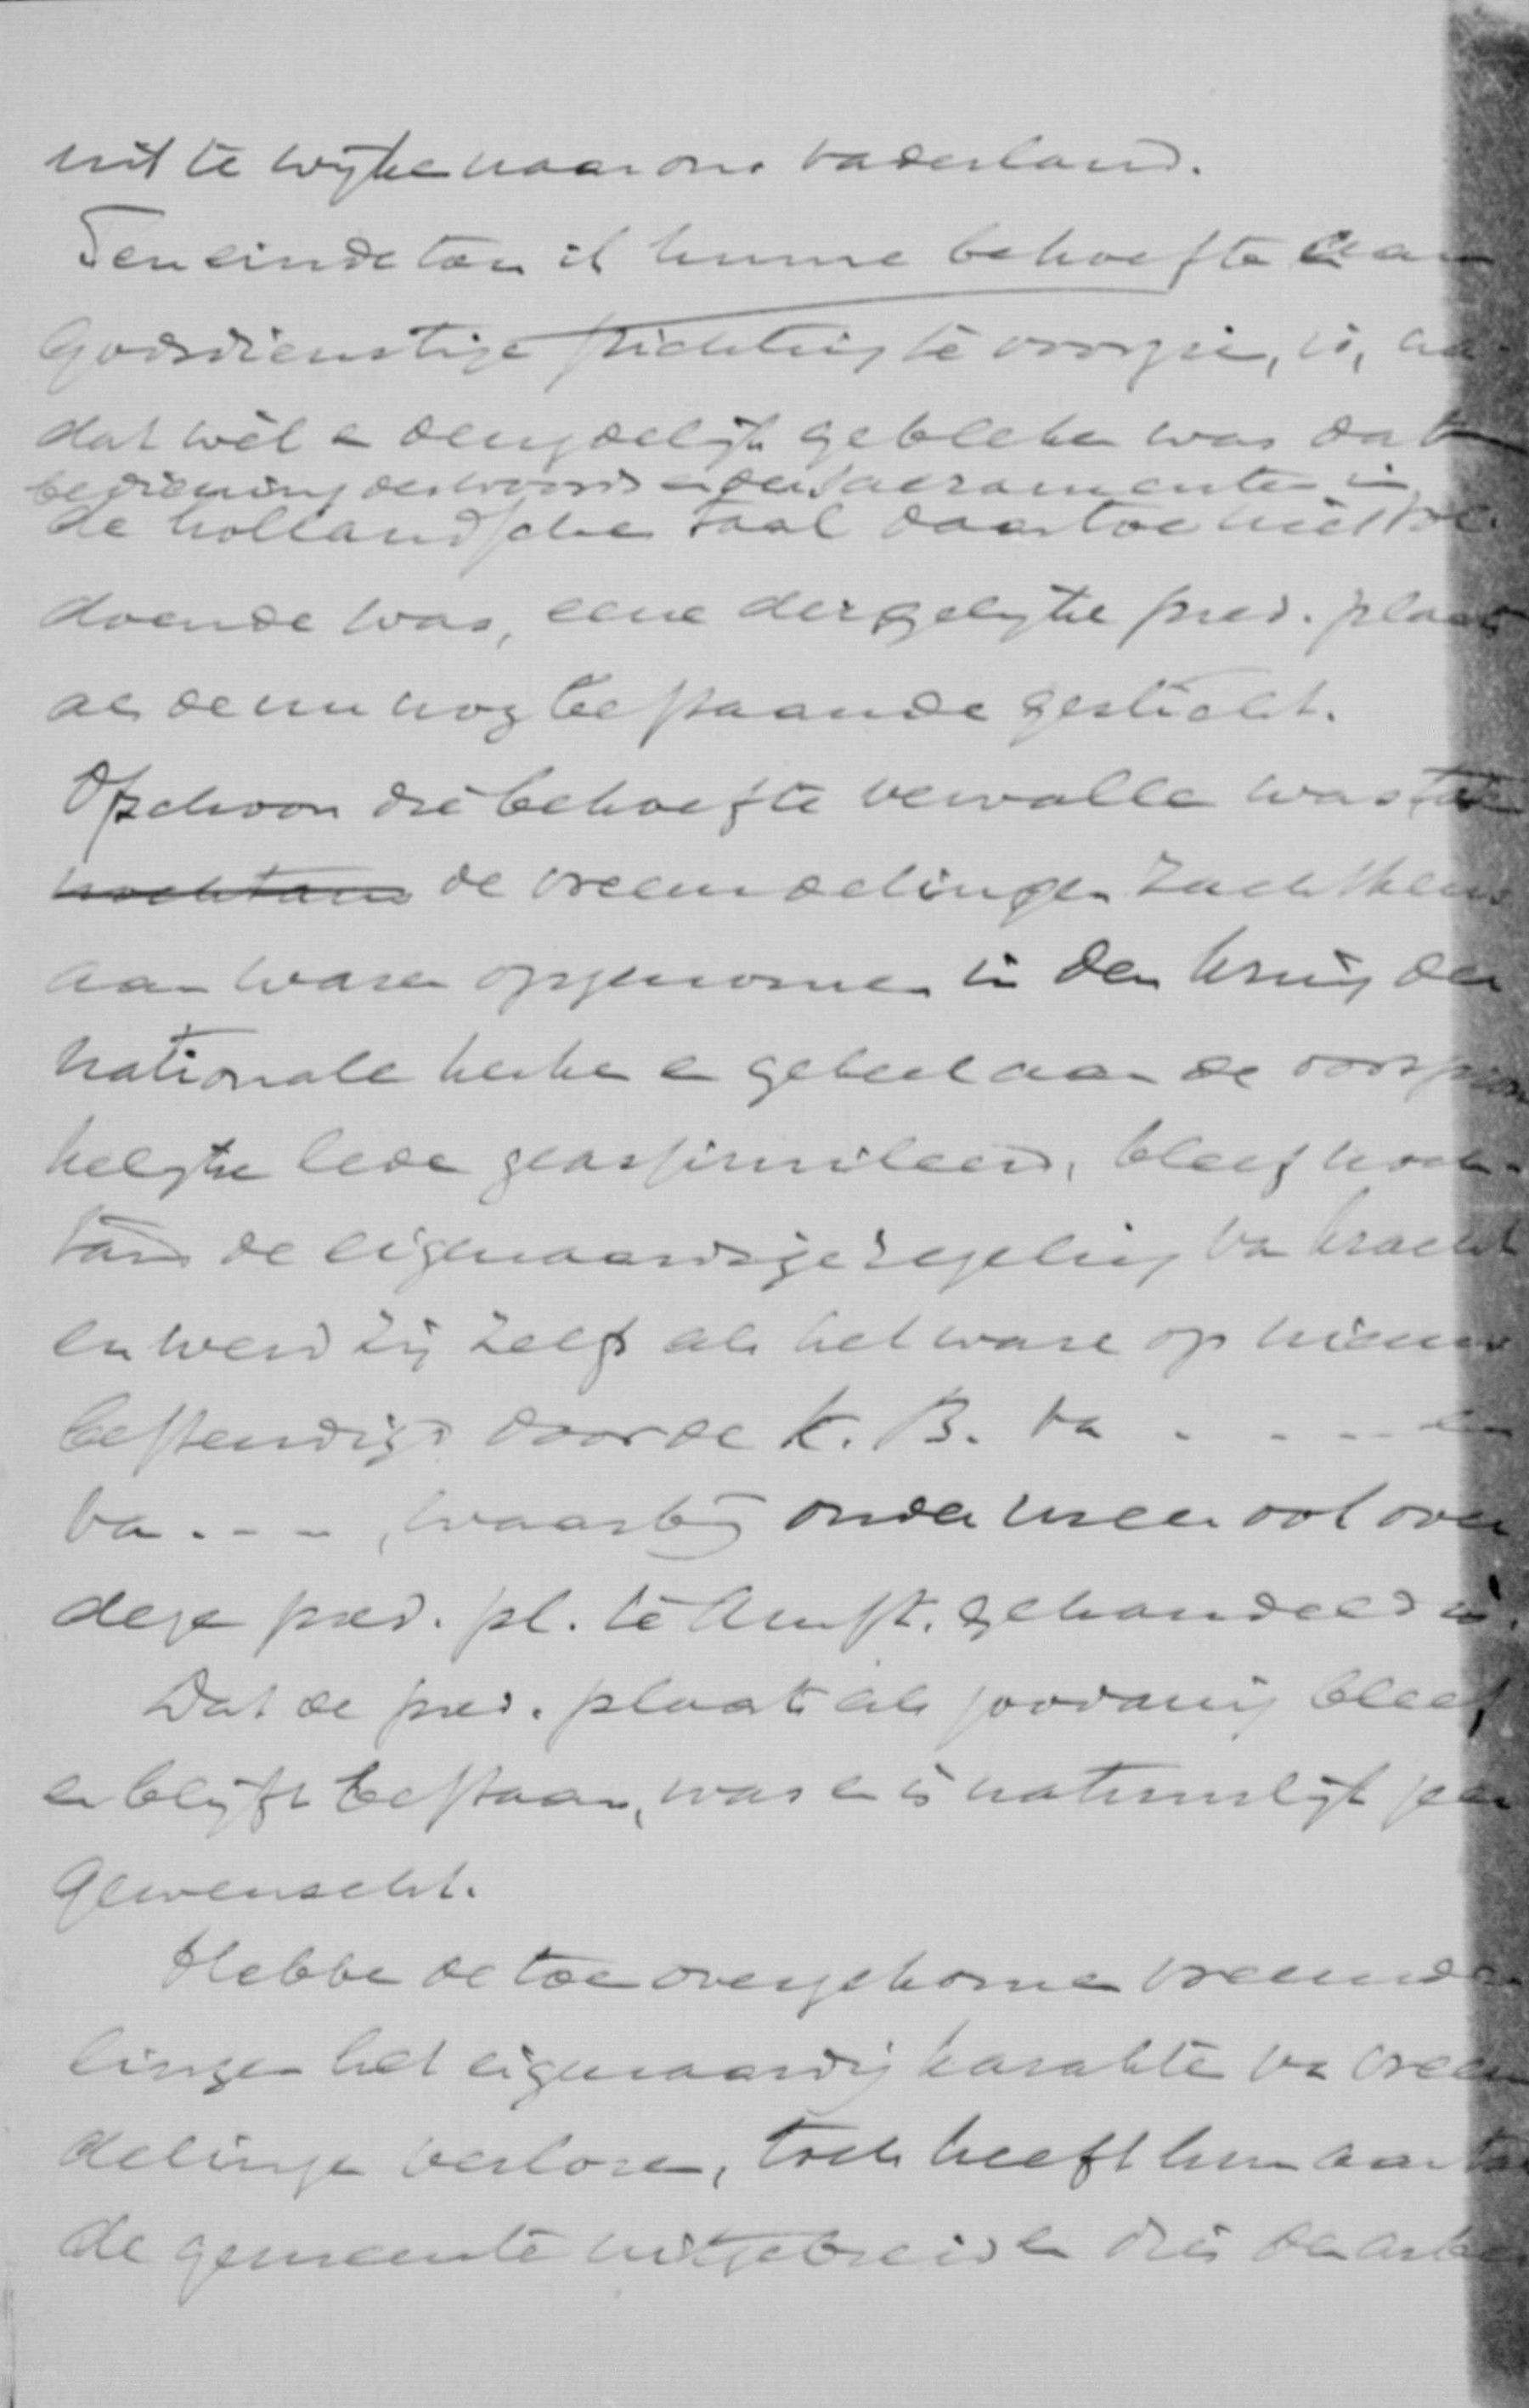 uit te wijken naar ons vaderland.
Ten einde toen in hunne behoefte aan
godsdienstige stichting te voorzien, is, na-
dat wèl en deugdelijk gebleken was dat
bediening des woords en der Sacramenten in
de hollandsche taal daartoe niet vol-
doende was, eene dergelijke pred. plaats
als de nu nog bestaande gesticht.
Ofschoon die behoefte vervallen was toen
nochtans de vreemdelingen zachtkens
aan waren opgenomen in den kring der
nationale kerken en geheel aan de oorspron-
kelijke leden geassimileerd, bleef noch-
tans de eigenaardige regeling van kracht
en werd zij zelfs als het ware op nieuw
bestendigd door de K. B. van . . . . en
van . . . , waarbij onder meer ook over
deze pred. pl. te Amst. gehandeld is.
Dat de pred. plaats als zoodanig bleef
en blijft bestaan, was en is natuurlijk zeer
gewenscht.
Hebben de toen overgekomen vreemde-
lingen het eigenaardig karakter van vreem-
delingen verloren, toch heeft hun aantal
de gemeente uitgebreid en dus de arbeid